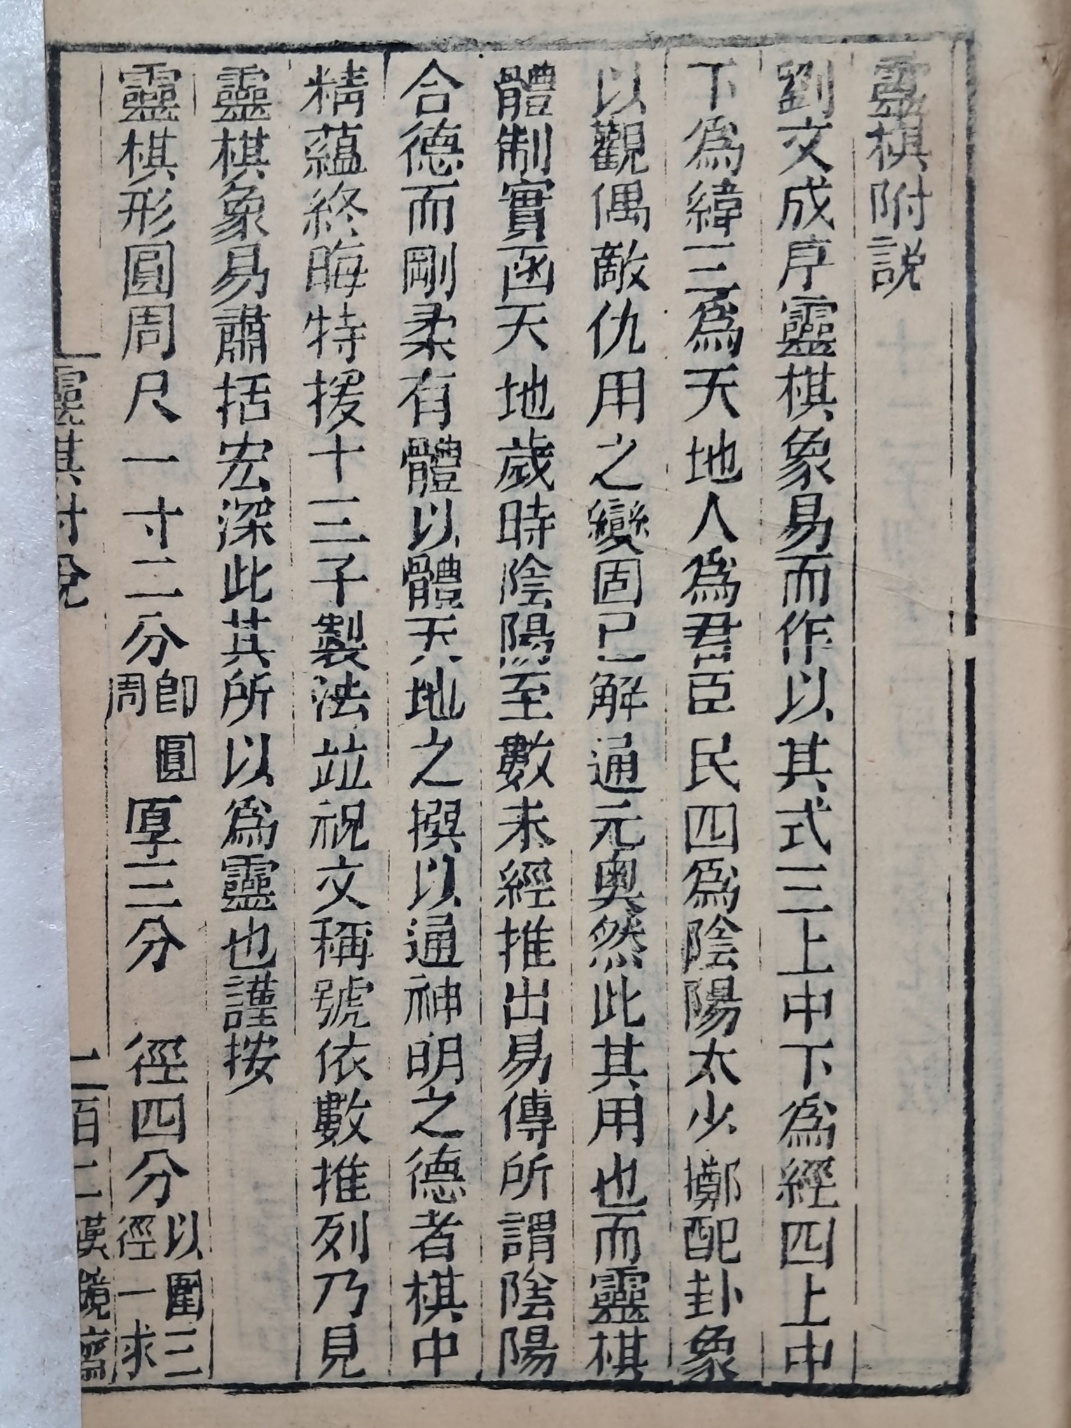 靈棋附説
劉文成序靈棋象易而作以其式三上中下爲經四上中
下爲緯三爲天地人爲君臣民四爲陰陽太少擲配卦象
以觀偶敵仇用之變固已解通元奥然此其用也而靈棋
體制實函天地歲時陰陽至數未經推出易傳所謂陰陽
合德而剛柔有體以體天地之撰以通神明之德者棋中
精蘊終晦特援十三子製法竝祝文稱號依數推列乃見
靈棋象易肅括宏深此其所以爲靈也謹按
靈棋形圓周尺一寸二分卽圓周厚三分 徑四分以圍三徑一求
靈棋附說 二百二